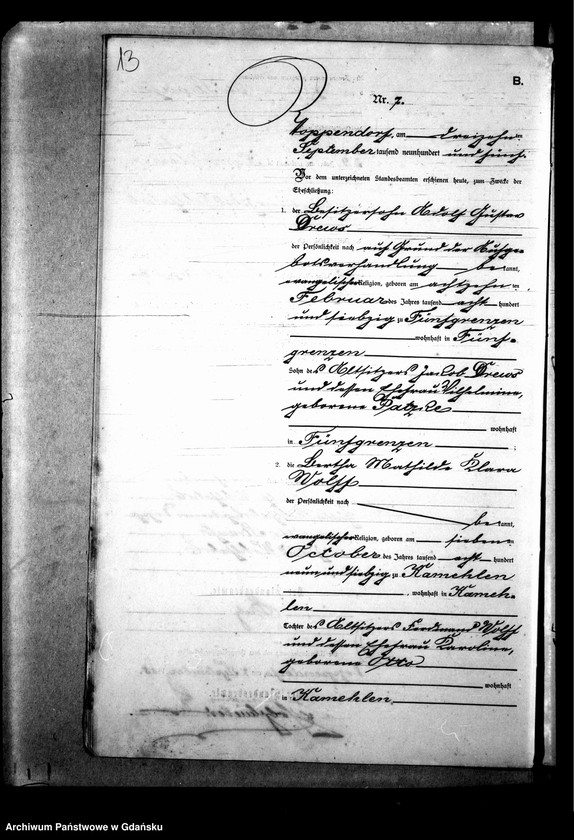 13
B.
Nr. 7.
Koppendorf, am dreizehn
September tausend neunhundert und fünf.
Vor dem unterzeichneten Standesbeamten erschienen heute, zum Zwecke der
Eheschließung:
1. der Besitzersohn Adolf Gustav
Drews
der Persönlichkeit nach auf Grund der Aufge-
botsverhandlung bekannt,
evangelischer Religion, geboren am achtzehn
Februar des Jahres tausend acht hundert
und siebzig zu Fünfgrenzen
wohnhaft in Fünf-
grenzen
Sohn des Altsitzers Jacob Drews
und dessen Ehefrau Wilhelmine,
geborene Patzke
wohnhaft
in Fünfgrenzen
2. die Bertha Mathilde Klara
Wolff
der Persönlichkeit nach
bekannt,
evangelischer Religion, geboren am sieben
October des Jahres tausend acht hundert
neunundsiebzig zu Kamehlen
, wohnhaft in Kameh-
len
Tochter des Altsitzers Ferdinand Wolff
und dessen Ehefrau Karoline,
geborene Otto
wohnhaft
in Kamehlen
Archiwum Państwowe w Gdańsku